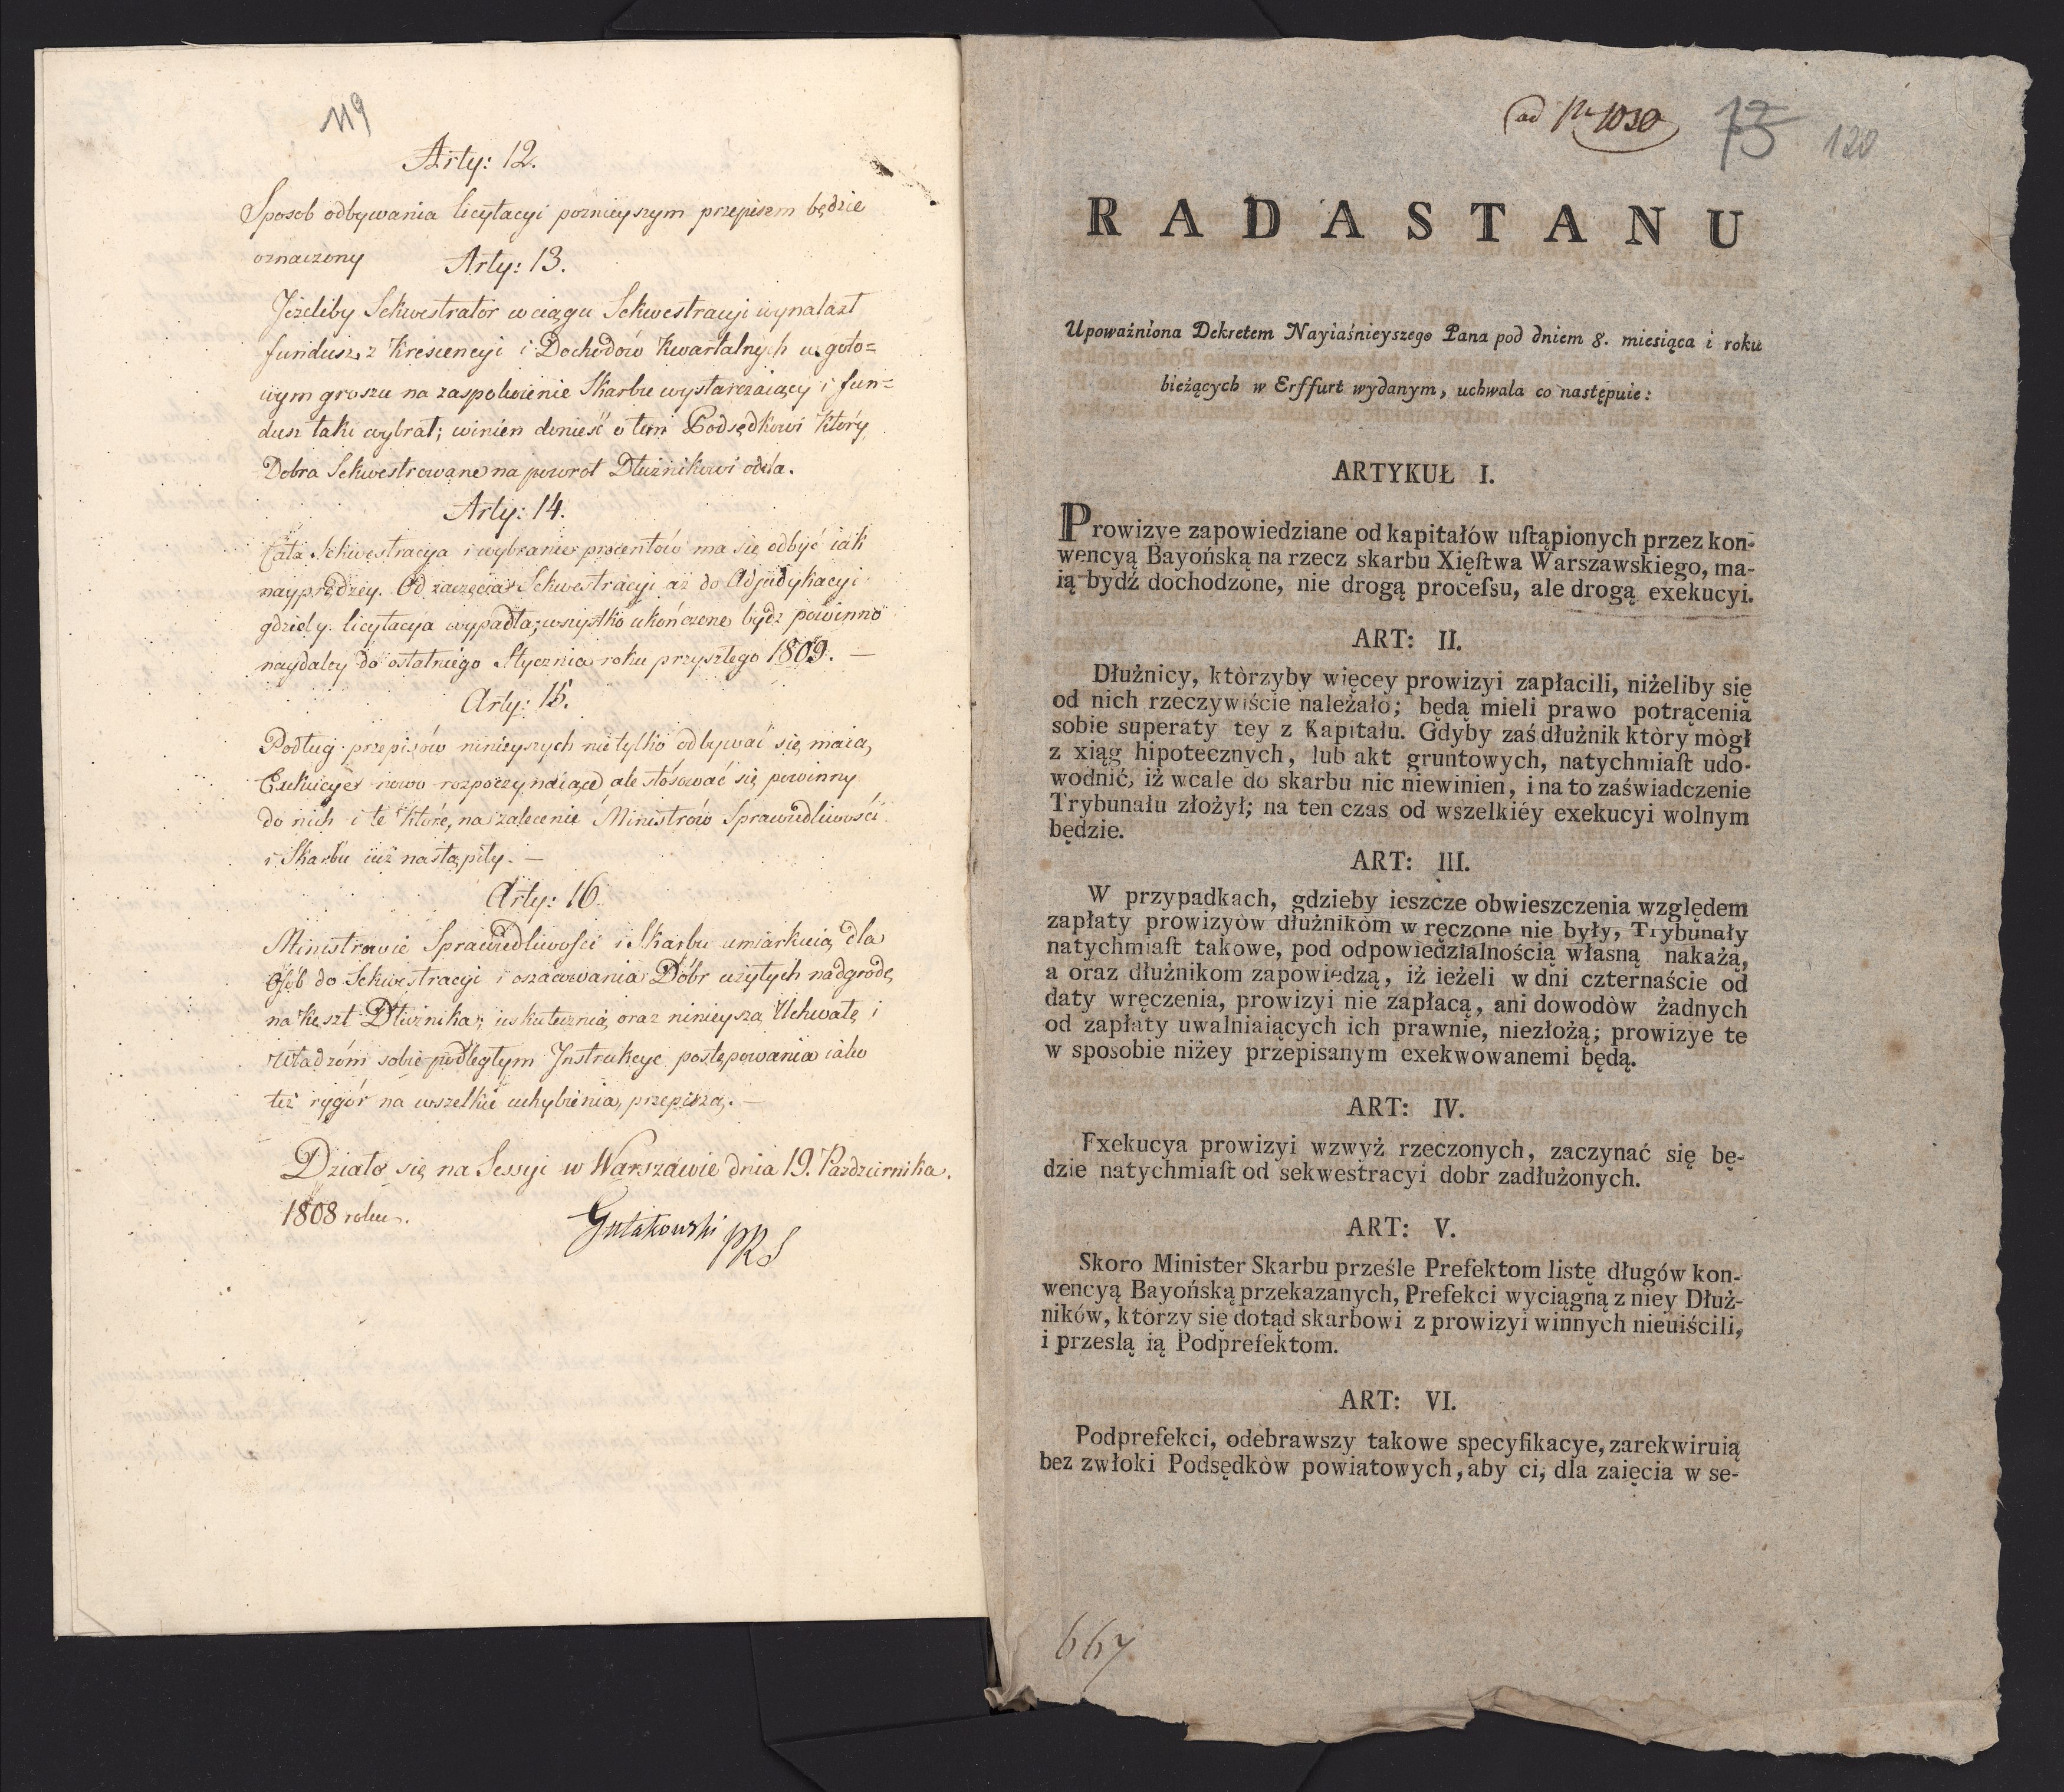 119
Arty: 12.
Sposob odbywania licytacyi poznieyszym przepisem będzie
oznaczony
Arty: 13.
Jeżeliby Sekwestrator w ciągu Sekwestracyi wynalazł
fundusz z Krescencyi i Dochodów Kwartalnych w goto=
wym groszu na zaspokoienie Skarbu wystarczaiący i fun=
dusz taki wybrał; winien donieść o tem Podsędkowi który
Dobra Sekwestrowane na powrot Dłużnikowi odda.
Arty: 14.
Cała Sekwestracya i wybranie procentów ma się odbyć iak
nayprędzey. Od zaczęcia Sekwestracyi aż do Adjudykacyi
gdzieby licytacya wypadła; wszystko ukończone bydź powinno
naydaley do ostatniego Stycznia roku przyszłego 1809. —
Arty: 15.
Podług przepisów ninieyszych nie tylko odbywać się maią,
Exekucye nowo rozpoczynaiące ale stósować się powinny
do nich i te które, na zalecenie Ministrów Sprawiedliwości
i Skarbu iuż nastąpiły. —
Arty: 16.
Ministrowie Sprawiedliwości i Skarbu umiarkuią dla
Osób do Sekwestracyi i oszacowania Dóbr użytych nadgrodę,
na koszt Dłużnika; uskutecznią oraz ninieyszą Uchwałę i
Władzom sobie podległym Instrukcye postępowania iako
też rygór na wszelkie uchybienia, przepiszą. —
Działo się na Sessyi w Warszawie dnia 19. Pazdziernika.
1808 roku.
Gutakowski PRS
ad Nr 1030
75
120
RADA STANU
Upoważniona Dekretem Nayiaśnieyszego Pana pod dniem 8. miesiąca i roku
bieżących w Erffurt wydanym, uchwala co następuie:
ARTYKUŁ I.
Prowizye zapowiedziane od kapitałów uſtąpionych przez kon-
wencyą Bayońską na rzecz skarbu Xięſtwa Warszawskiego, ma-
ią bydź dochodzone, nie drogą proceſsu, ale drogą exekucyi.
ART: II.
Dłużnicy, ktòrzyby więcey prowizyi zapłacili, niżeliby się
od nich rzeczywiście należało; będą mieli prawo potrącenia
sobie superaty tey z Kapitału. Gdyby zaś dłużnik ktòry mògł
z xiąg hipotecznych, lub akt gruntowych, natychmiaſt udo-
wodnić, iż wcale do skarbu nic niewinien, i na to zaświadczenie
Trybunału złożył; na ten czas od wszelkiéy exekucyi wolnym
będzie.
ART: III.
W przypadkach, gdzieby ieszcze obwieszczenia względem
zapłaty prowizyòw dłużnikòm w ręczone nie były, Trybunały
natychmiaſt takowe, pod odpowiedzialnością własną nakażą,
a oraz dłużnikom zapowiedzą, iż ieżeli w dni czternaście od
daty wręczenia, prowizyi nie zapłacą, ani dowodòw żadnych
od zapłaty uwalniaiących ich prawnie, niezłożą; prowizye te
w sposobie niżey przepisanym exekwowanemi będą.
ART: IV.
Fxekucya prowizyi wzwyż rzeczonych, zaczynać się bę-
dzie natychmiaſt od sekwestracyi dobr zadłużonych.
ART: V.
Skoro Minister Skarbu prześle Prefektom listę długów kon-
wencyą Bayońską przekazanych, Prefekci wyciągną z niey Dłuż-
ników, którzy się dotąd skarbowi z prowizyi winnych nieuiścili,
i przeslą ią Podprefektom.
ART: VI.
Podprefekci, odebrawszy takowe specyfikacye, zarekwiruią
bez zwłoki Podsędkòw powiatowych, aby ci, dla zaięcia w se-
667